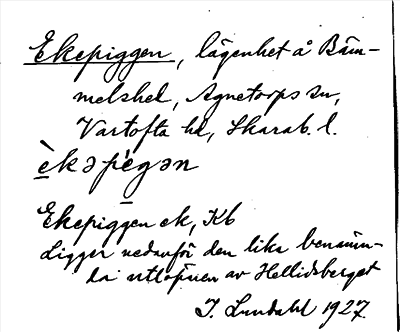 Ekepiggen, lägenhet å Bäm-
melshed, Agnetorps sn,
Vartofta hd, Skarab. l.
èkəpègən
Ekepiggen ek, Kb
Ligger nedanför den lika benämn-
da utlöpüen av Hellidsberget
I. Lundahl 1927.